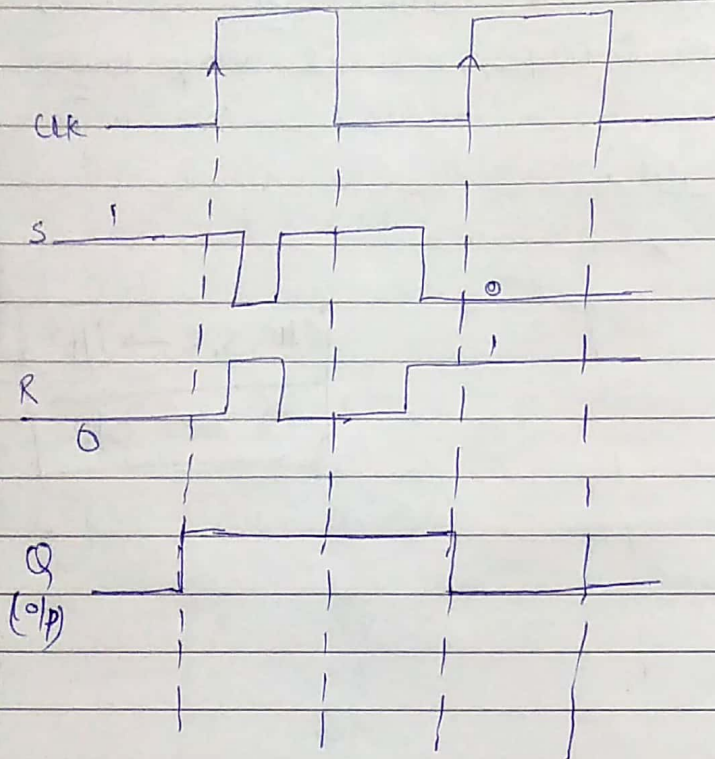 CLK
S 1
0
R 1
0
Q
(o/p)